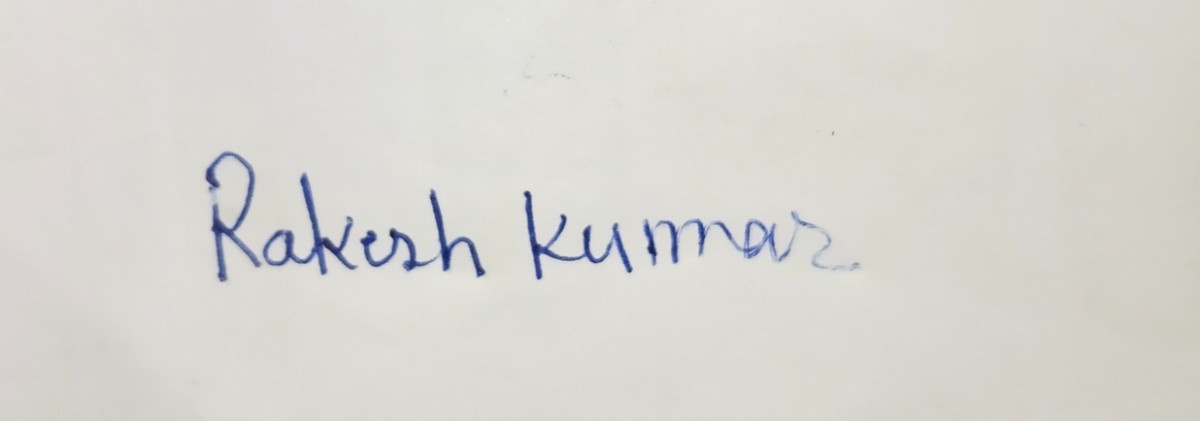 Rakesh Kumar